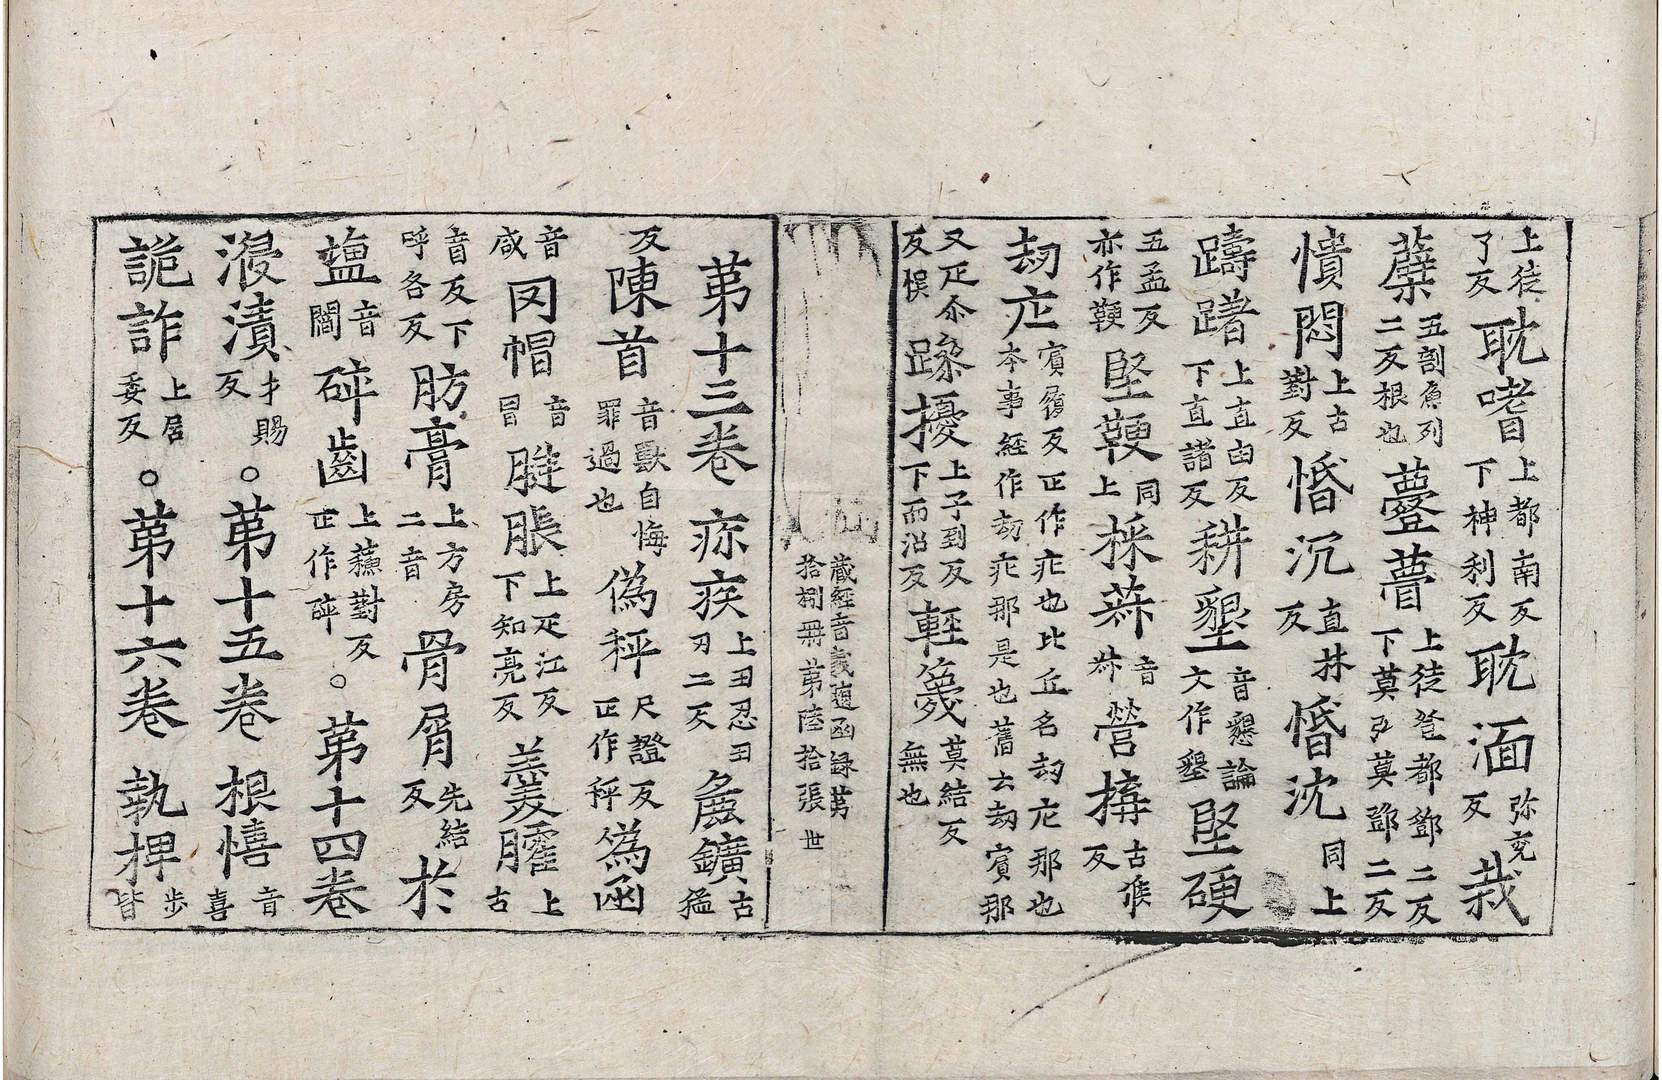 上徒了反耽嗜上都南反下神利反耽湎弥兖反栽
蘖五割魚列二反根也薹瞢上徒登都鄧二反下莫登莫鄧二反
憒悶上古對反惛沉直林反惛沈同上
躊躇上直由反下直諸反耕墾音懇論文作墾堅硬
五孟反亦作鞕堅鞕同上採菻音菻營搆古候反
劫庀賓履反正作庇也比丘名劫庀那也本事経作劫庇那是也舊云劫賓那
又疋尒反悮躁擾上子到反下而沼反輕篾莫結反無也
藏經音義隨函録第拾捌冊第陸拾張 世
第十三巻 疢疾上丑忍丑刃二反麁鑛古猛
反陳首音獸自悔罪過也偽秤尺證反正作秤為函
音咸罔帽音冒胮脹上疋江反下知亮反羹臛上古
音反下呼各反肪膏上方房二音骨屑先結反於
盬音閻碎齒上蘓對反正作碎。第十四巻
浸漬才賜反。第十五巻 根憘音喜
詭詐上居委反。第十六巻 執捭步皆